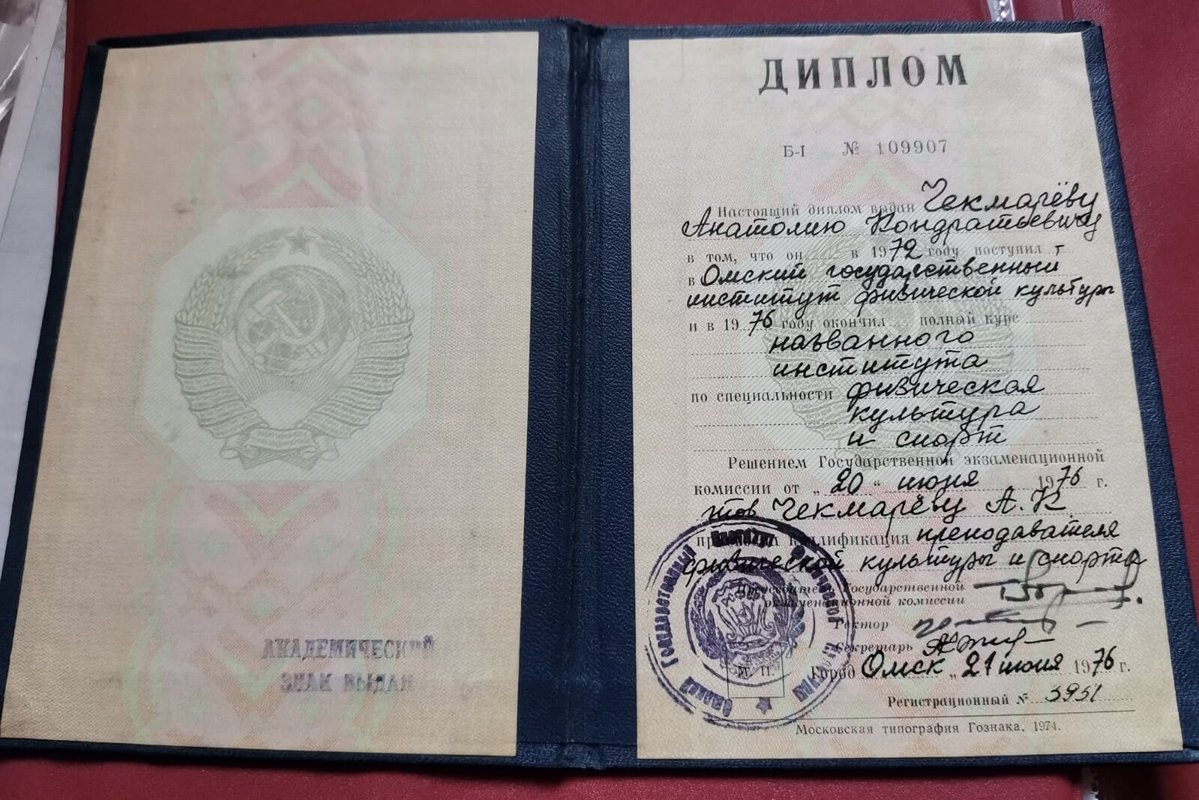 АКАДЕМИЧЕСКИЙ
ЗНАК ВЫДАН
ДИПЛОМ
Б-I № 109907
Настоящий диплом выдан Чекмарёву
Анатолию Кондратьевичу
в том, что он в 1972 году поступил
в Омский государственный
институт физической культуры
и в 1976 году окончил полный курс
названного
института
по специальности физическая
культура
и спорт
Решением Государственной экзаменационной
комиссии от „20“ июня 1976 г.
тов. Чекмарёву А. К.
присвоена квалификация преподавателя
физической культуры и спорта
Председатель Государственной
экзаменационной комиссии
Ректор
Секретарь
М. П.
Город Омск „21 июня 1976 г.
Регистрационный № 3951
Московская типография Гознака. 1974.